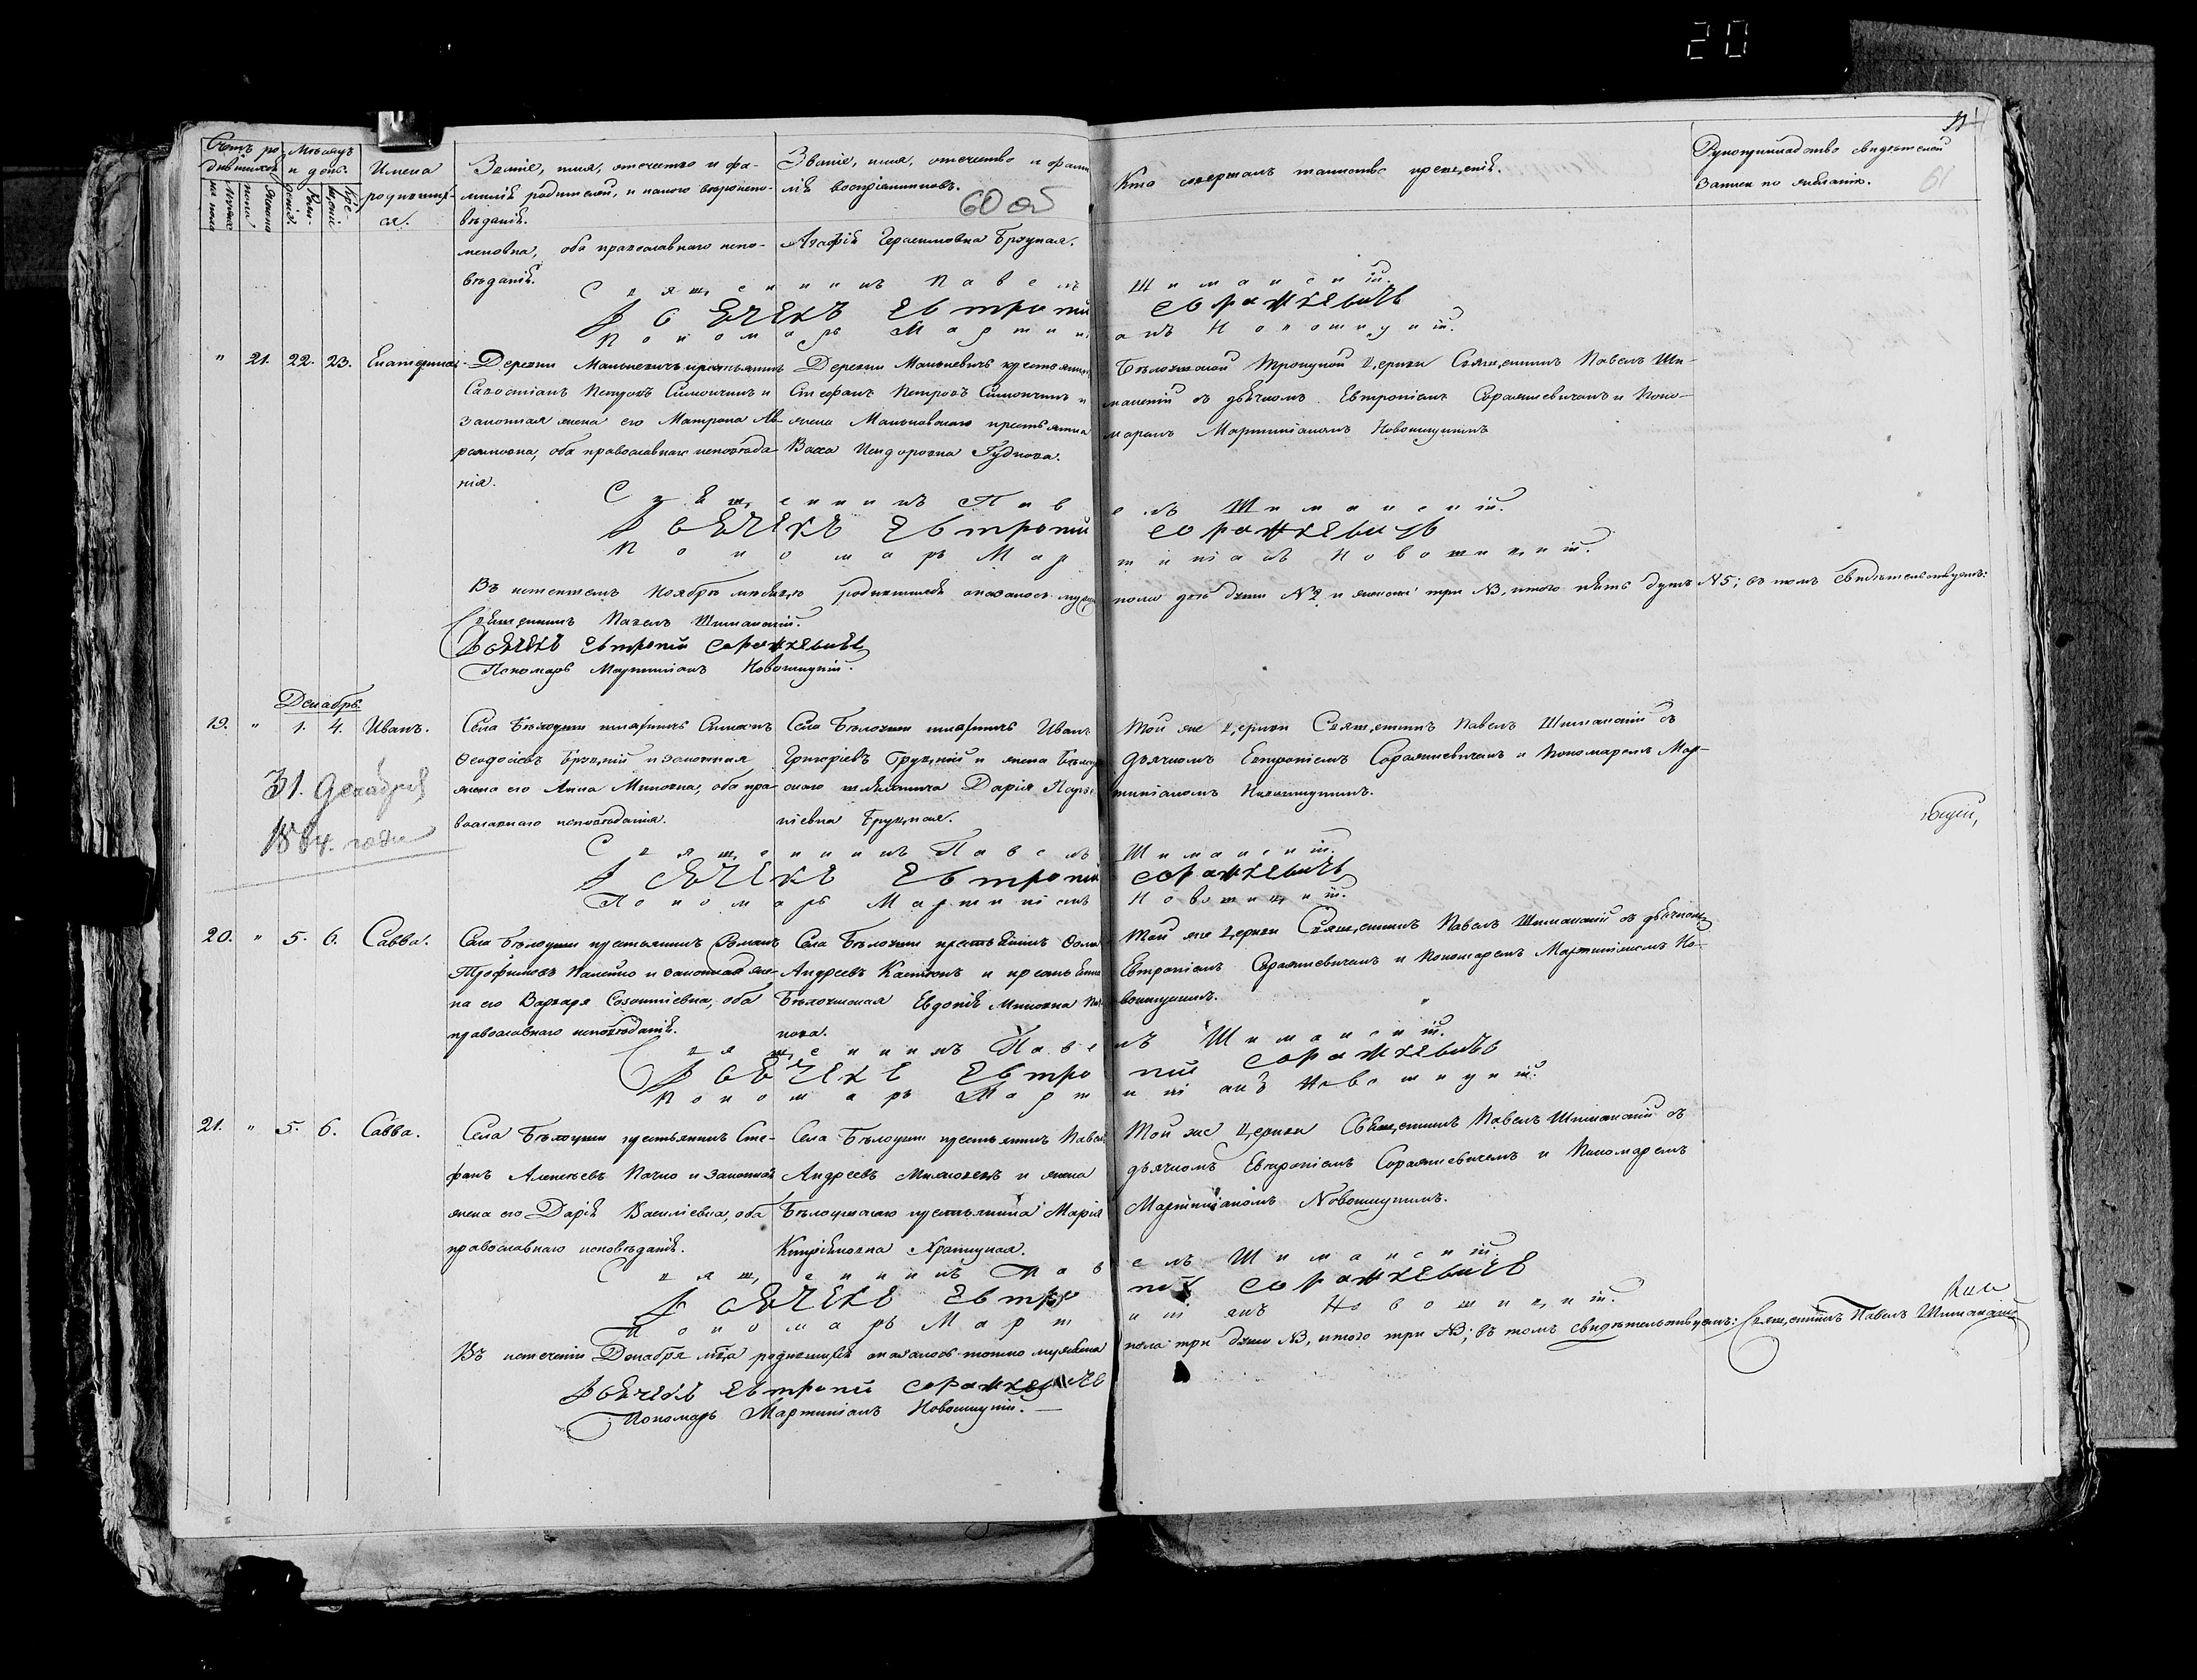 20
Счетъ ро-
дившихся
Мѣсяцъ
и день.
Имена
родивших-
ся.
Званіе, имя, отчество и фа-
милія родителей, и какого вѣроиспо-
вѣданія.
Званіе, имя, отчество и фами-
лія воспріемниковъ.
60 об
Кто совершалъ таинство крещенія.
Рукоприкладство свидѣтелей
записи по желанію.
61
меновна, оба православнаго испо-
вѣданія.
Агафія Герасимовна
Священникъ Павелъ Шиманскій.
Дьячекъ Евтропій Соражкевичъ
Пономарь Мартиніанъ Новошицкій.
" 21. 22. 23. Екатерина.
Деревни Малкевичъ крестьянинъ
Савостіанъ Петровъ Симончикъ и
законная жена его Матрона Ав-
рамовна, оба православнаго исповѣда-
нія.
Деревни Малкевичъ крестьянинъ
Стефанъ Петровъ Симончикъ и
жена крестьянина
Васса Исидоровна
Троицкой церкви Священникъ Павелъ Ши-
манскій съ дьячкомъ Евтропіемъ Соражкевичемъ и Поно-
маремъ Мартиніаномъ Новошицкимъ
Священникъ Павелъ Шиманскій.
Дьячекъ Евтропій Соражкевичъ
Пономарь Мартиніанъ Новошицкій.
Въ истекшемъ Ноябрѣ мѣсяцѣ родившихся оказалось мужска пола двѣ души №2 и женска три №3, итого пять душъ №5; въ томъ свидѣтельствуемъ:
Священникъ Павелъ Шиманскій.
Дьячекъ Евтропій Соражкевичъ
Пономарь Мартиніанъ Новошицкій.
Декабрь
19. " 1. 4. Иванъ.
31. Декабря
1864. года
Села Бѣлоуши шляхтичъ Симонъ
Ѳеодосіевъ и законная
жена его Анна Миновна, оба пра-
вославнаго исповѣданія.
Села Бѣлоуши шляхтичъ Иванъ
Григоріевъ и жена
шляхтича Дарія
Той же церкви Священникъ Павелъ Шиманскій съ
дьячкомъ Евтропіемъ Соражкевичемъ и Пономаремъ Мар-
тиніаномъ Новошицкимъ.
Священникъ Павелъ Шиманскій.
Дьячекъ Евтропій Соражкевичъ
Пономарь Мартиніанъ Новошицкій.
20. " 5. 6. Савва.
Села Бѣлоуши крестьянинъ Романъ
Трофимовъ и законная же-
на его Варвара Созонтіевна, оба
православнаго исповѣданія.
Села Бѣлоуши крестьянинъ Ѳома
Андреевъ и
Евдокія Миновна
Той же церкви Священникъ Павелъ Шиманскій съ дьячкомъ
Евтропіемъ Соражкевичемъ и Пономаремъ Мартиніаномъ Но-
вошицкимъ.
Священникъ Павелъ Шиманскій.
Дьячекъ Евтропій Соражкевичъ
Пономарь Мартиніанъ Новошицкій.
21. " 5. 6. Савва.
Села Бѣлоуши крестьянинъ Сте-
фанъ Алексѣевъ и законная
жена его Дарія Василіевна, оба
православнаго исповѣданія.
Села Бѣлоуши крестьянинъ Павелъ
Андреевъ и жена
Бѣлоушскаго крестьянина Марія
Той же церкви Священникъ Павелъ Шиманскій съ
дьячкомъ Евтропіемъ Соражкевичемъ и Пономаремъ
Мартиніаномъ Новошицкимъ.
Священникъ Павелъ Шиманскій.
Дьячекъ Евтропій Соражкевичъ
Пономарь Мартиніанъ Новошицкій.
Въ истеченіи Декабря м-ца родившихся оказалось только мужска пола три души №3, итого три №3; въ томъ свидѣтельствуемъ: Священникъ Павелъ Шиманскій
Дьячекъ Евтропій Соражкевичъ
Пономарь Мартиніанъ Новошицкій.